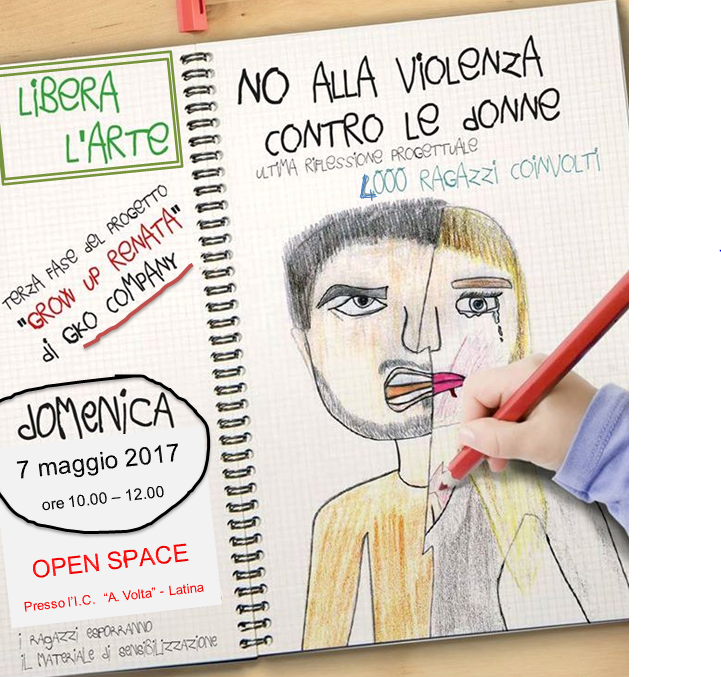 LiBERA
L'ARTE
TERZA FASE del PROGETTO
"GROW UP RENATA"
di GKO COMPANY
dOMeNiCA
7 maggio 2017
ore 10.00 – 12.00
OPEN SPACE
Presso l'I.C. "A. Volta" - Latina
i RAGAZZi ESPORRANNO
iL MATERiALE di SENSiBiLiZZAZiONE
NO ALLA ViOLENZA
CONTRO LE dONNE
ULTIMA RIFLESSIONE PROGETTUALE
4000 RAGAZZi COiNVOLTi